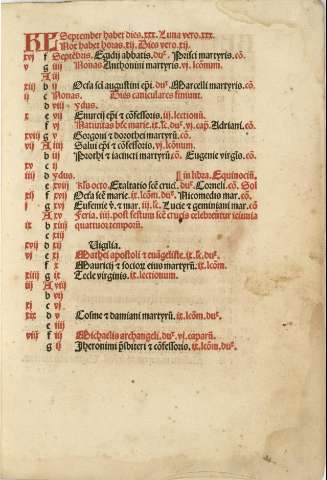 KL September habet dies .xxx. Luna vero .xxx.
Nox habet horas .xij. Dies vero .xij.
xvj f Septēbris. Egidij abbatis. du⁹. Prisci martyris. cō.
v g iiij Nonas. Anthonini martyris. vj. lcōnum.
A iij
xiij b ij Octa sci augustini epi. du⁹. Marcelli martyris. cō.
ij c Nonas. Dies caniculares finiunt.
d viij ydus.
x e vij Enurcij epi ⁊ cōfessoris. iij. lectionū.
f vj Natiuitas bte marie. ix. lc. du⁹. vj. cap. Adriani. cō.
xviij g v Gorgonij ⁊ dorothei martyrū. cō.
vij A iiij Salui epi ⁊ cōfessoris. vj. lcōnum.
b iij Prothi ⁊ iacincti martyrū. cō. Eugenie virgīs. cō.
xv c ij
iiij d ydus. in libra. Equinociū.
e xviij Kl's octo. Exaltatio scē cruc. du⁹. Corneli. cō. Sol
xij f xvij Octa scē marie. ix. lcōm. du⁹. Nicomedis mar. cō.
j g xvj Eufemie v. ⁊ mar. iij. lc. Lucie ⁊ geminiani mar. cō
A xv Feria. iiij. post festum scē crucis celebrētur ieiunia
ix b xiiij quattuor temporū.
c xiij
xvij d xij Vigilia.
vj e xj Mathei apostoli ⁊ euāgeliste. ix. lc. du⁹.
f x Mauricij ⁊ socior eius martyrū. ix. lcōm.
xiiij g ix Tecle virginis. ix. lectionum.
iij A viij
b vij
xj c vj
xix d v Cosme ⁊ damiani martyrū. ix. lcōm. du⁹.
e iiij
viij f iij Michaelis archangeli. du⁹. vj. caparū.
g ij Jheronimi pšbiteri ⁊ cōfessoris. ix. lcōm. du⁹.